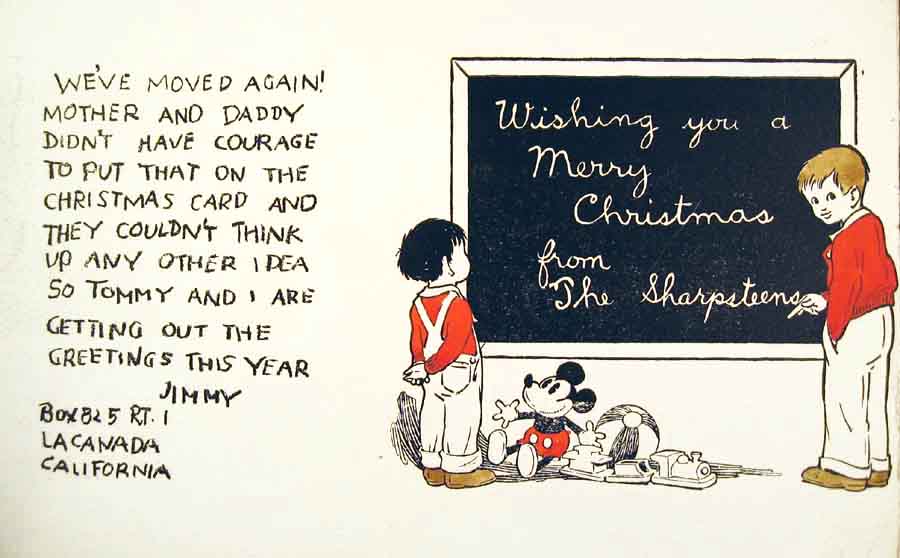 WE'VE MOVED AGAIN!
MOTHER AND DADDY
DIDN'T HAVE COURAGE
TO PUT THAT ON THE
CHRISTMAS CARD AND
THEY COULDN'T THINK
UP ANY OTHER IDEA
SO TOMMY AND I ARE
GETTING OUT THE
GREETINGS THIS YEAR
JIMMY
BOX 825 RT. 1
LACANADA
CALIFORNIA
Wishing you a
Merry
Christmas
from
The Sharpsteens